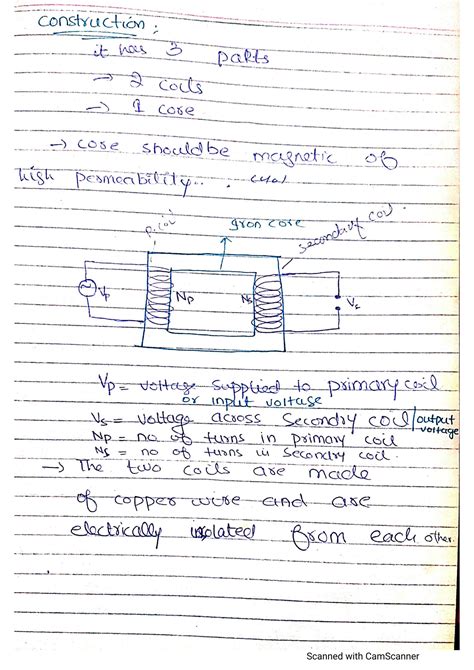 Construction :
it has 3 parts
→ 2 coils
→ 1 core
→ core should be magnetic of
high permeability..
P.coil
iron core
secondary coil.
Vp
Np
Ns
Vs
Vp = voltage supplied to primary coil
or input voltage
Vs = voltage across Secondry coil/output voltage
Np = no. of turns in primary coil
Ns = no of turns in Secondry coil.
→ The two coils are made
of copper wire and are
electrically isolated from each other.
Scanned with CamScanner